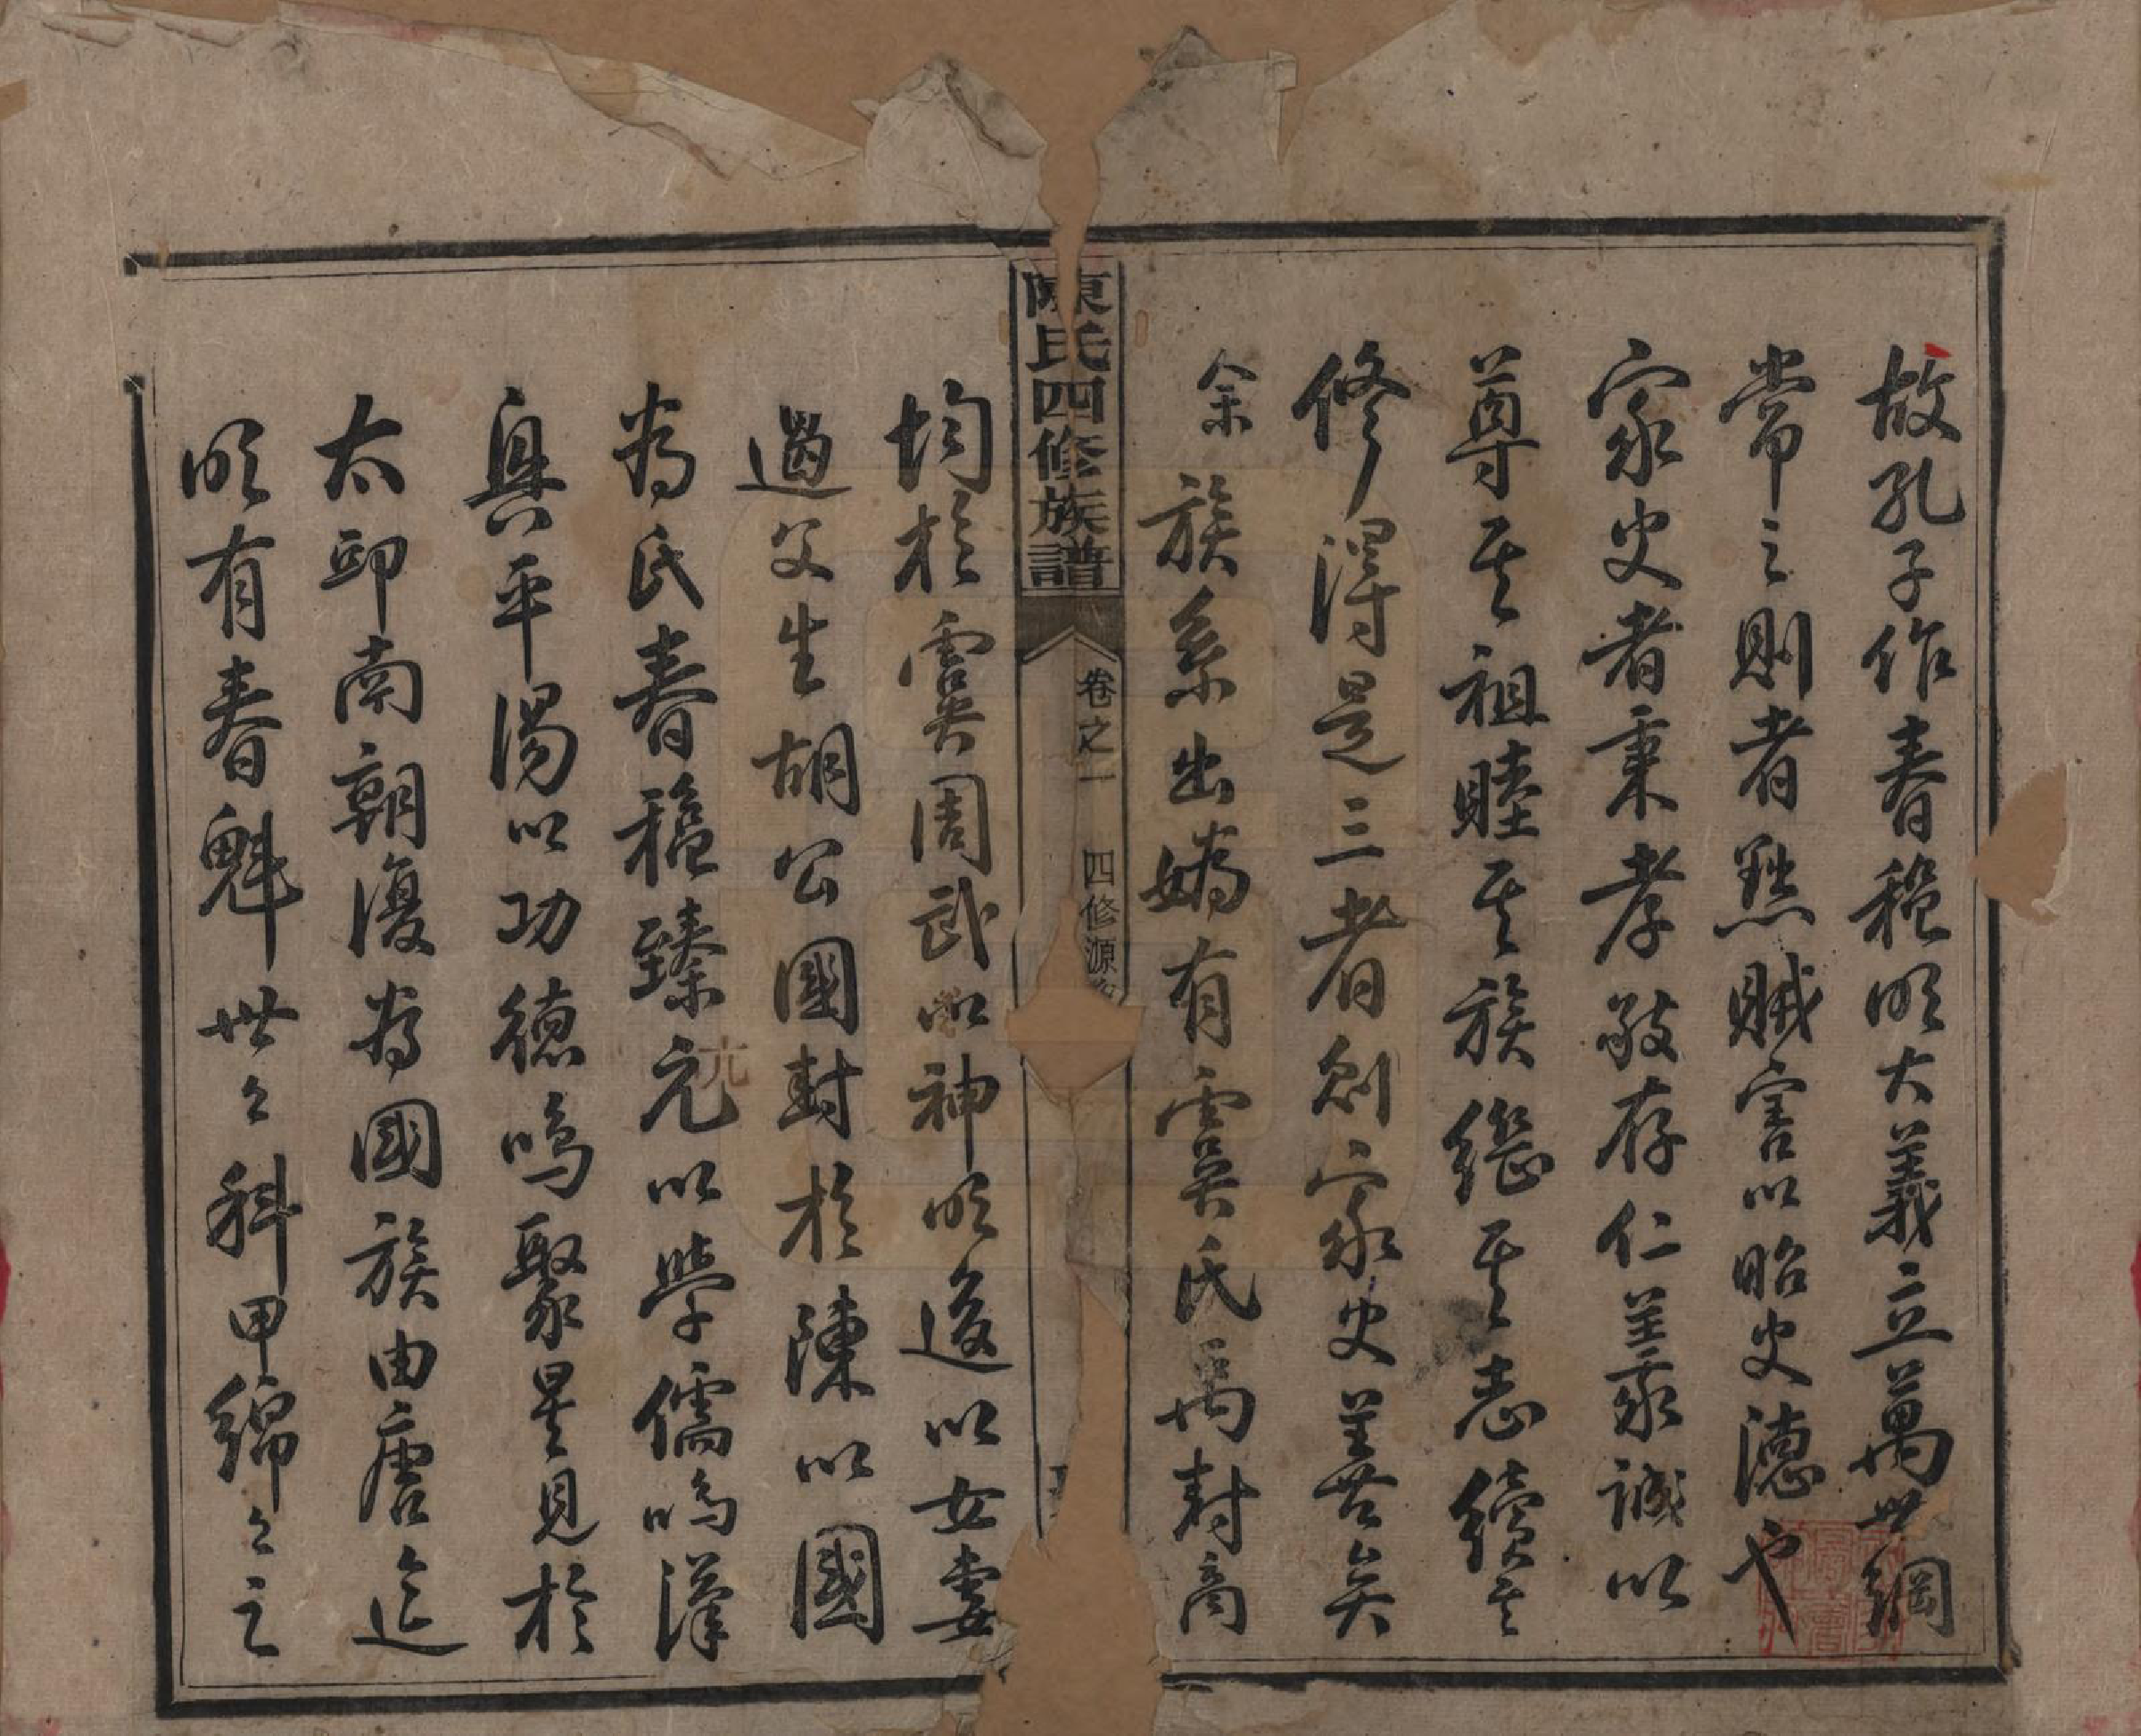 故孔子作春穐明大義立萬世綱
常之則者點賊害以昭史德也
家史者秉孝敬存仁善眾誠以
尊其祖睦其族繼其志續其
修得是三者創家史善矣
余族系出嬀有虞氏禹封商
均於虞周武以神明後以女妻
遏父生胡公國封於陳以國
為氏春穐臻元以學儒鳴漢
興平陽以功德鳴聚星見於
太邱南朝復為國族由唐迄
明有春魁世々科甲綿々之
陳氏四修族譜
卷之一
四修源